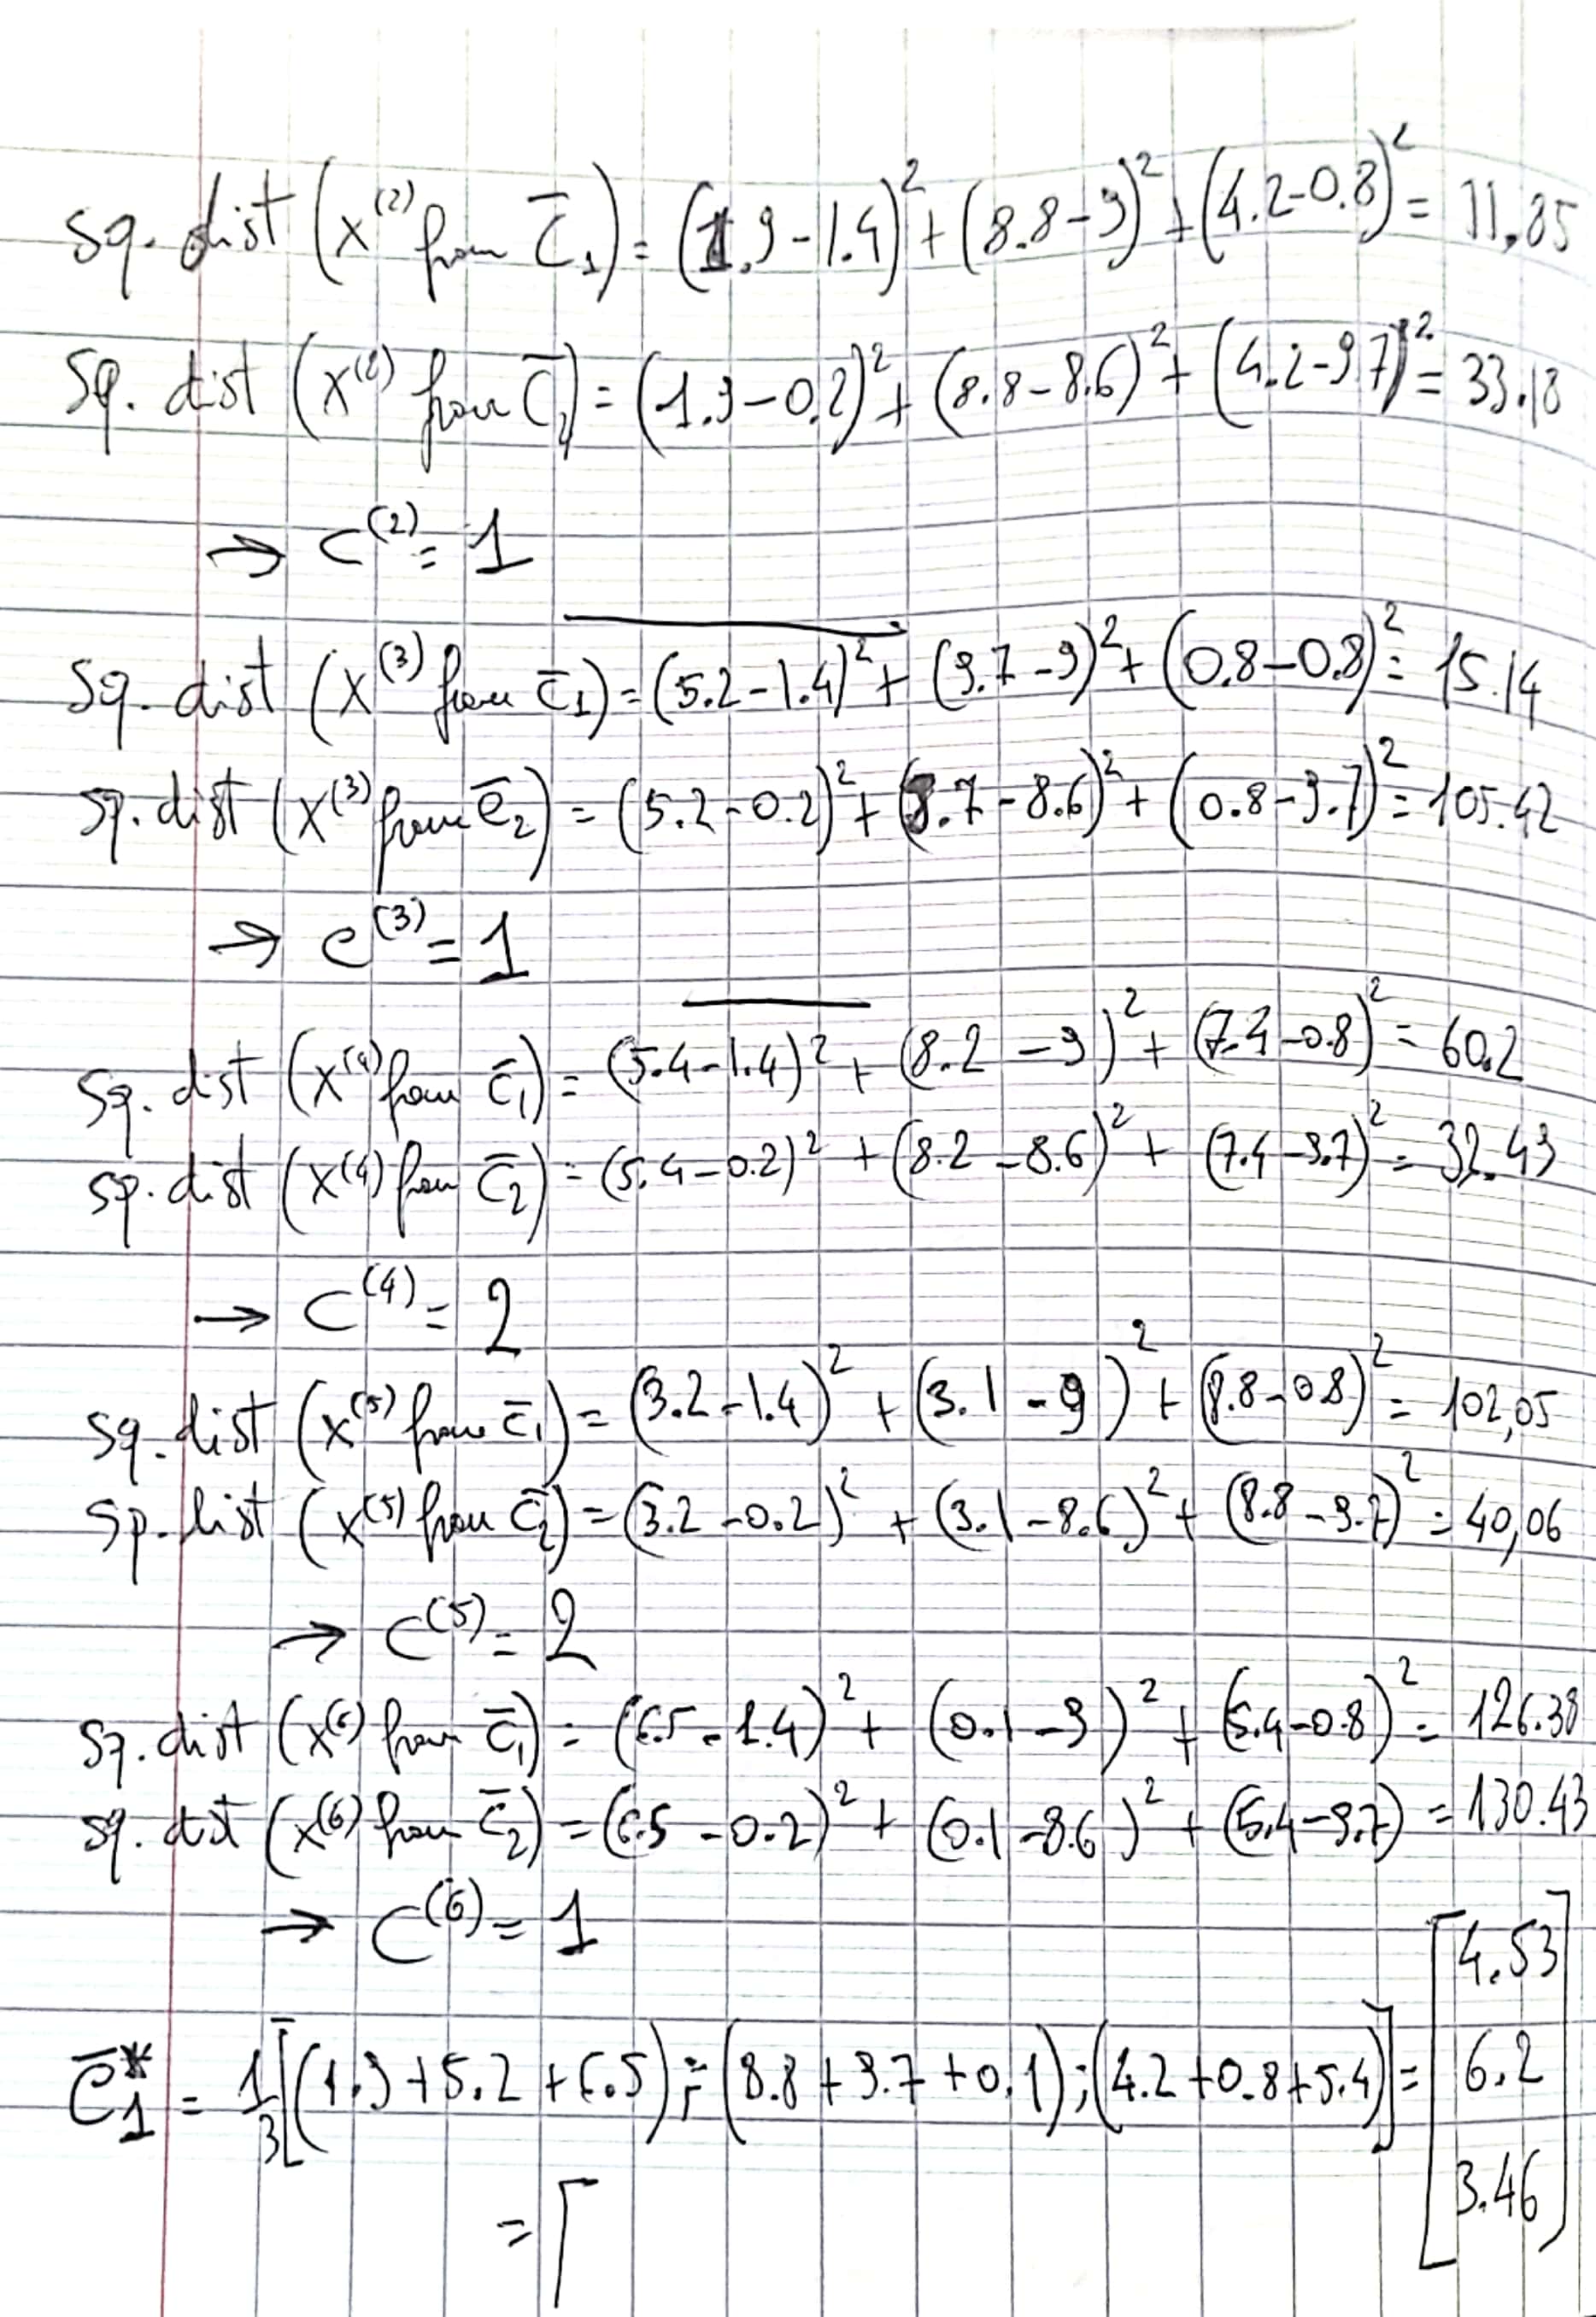 Sq. dist (x^(2) from c̄_1) = (1.9-1.4)^2 + (8.8-9)^2 + (4.2-0.8)^2 = 11.85
Sq. dist (x^(2) from c̄_2) = (1.9-0.2)^2 + (8.8-8.6)^2 + (4.2-9.7)^2 = 33.18
→ c^(2) = 1
Sq. dist (x^(3) from c̄_1) = (5.2-1.4)^2 + (9.7-9)^2 + (0.8-0.8)^2 = 15.14
Sq. dist (x^(3) from c̄_2) = (5.2-0.2)^2 + (9.7-8.6)^2 + (0.8-9.7)^2 = 105.42
→ c^(3) = 1
Sq. dist (x^(4) from c̄_1) = (5.4-1.4)^2 + (8.2-9)^2 + (7.4-0.8)^2 = 60.2
Sq. dist (x^(4) from c̄_2) = (5.4-0.2)^2 + (8.2-8.6)^2 + (7.4-9.7)^2 = 32.49
→ c^(4) = 2
Sq. dist (x^(5) from c̄_1) = (3.2-1.4)^2 + (3.1-9)^2 + (8.8-0.8)^2 = 102,05
Sq. dist (x^(5) from c̄_2) = (3.2-0.2)^2 + (3.1-8.6)^2 + (8.8-9.7)^2 = 40,06
→ c^(5) = 2
Sq. dist (x^(6) from c̄_1) = (6.5-1.4)^2 + (0.1-9)^2 + (5.4-0.8)^2 = 126.38
Sq. dist (x^(6) from c̄_2) = (6.5-0.2)^2 + (0.1-8.6)^2 + (5.4-9.7) = 130.43
→ c^(6) = 1
c̄_1^* = 1/3 [(1.9+5.2+6.5); (8.8+9.7+0.1); (4.2+0.8+5.4)] = [4.53 6.2 3.46]
= [